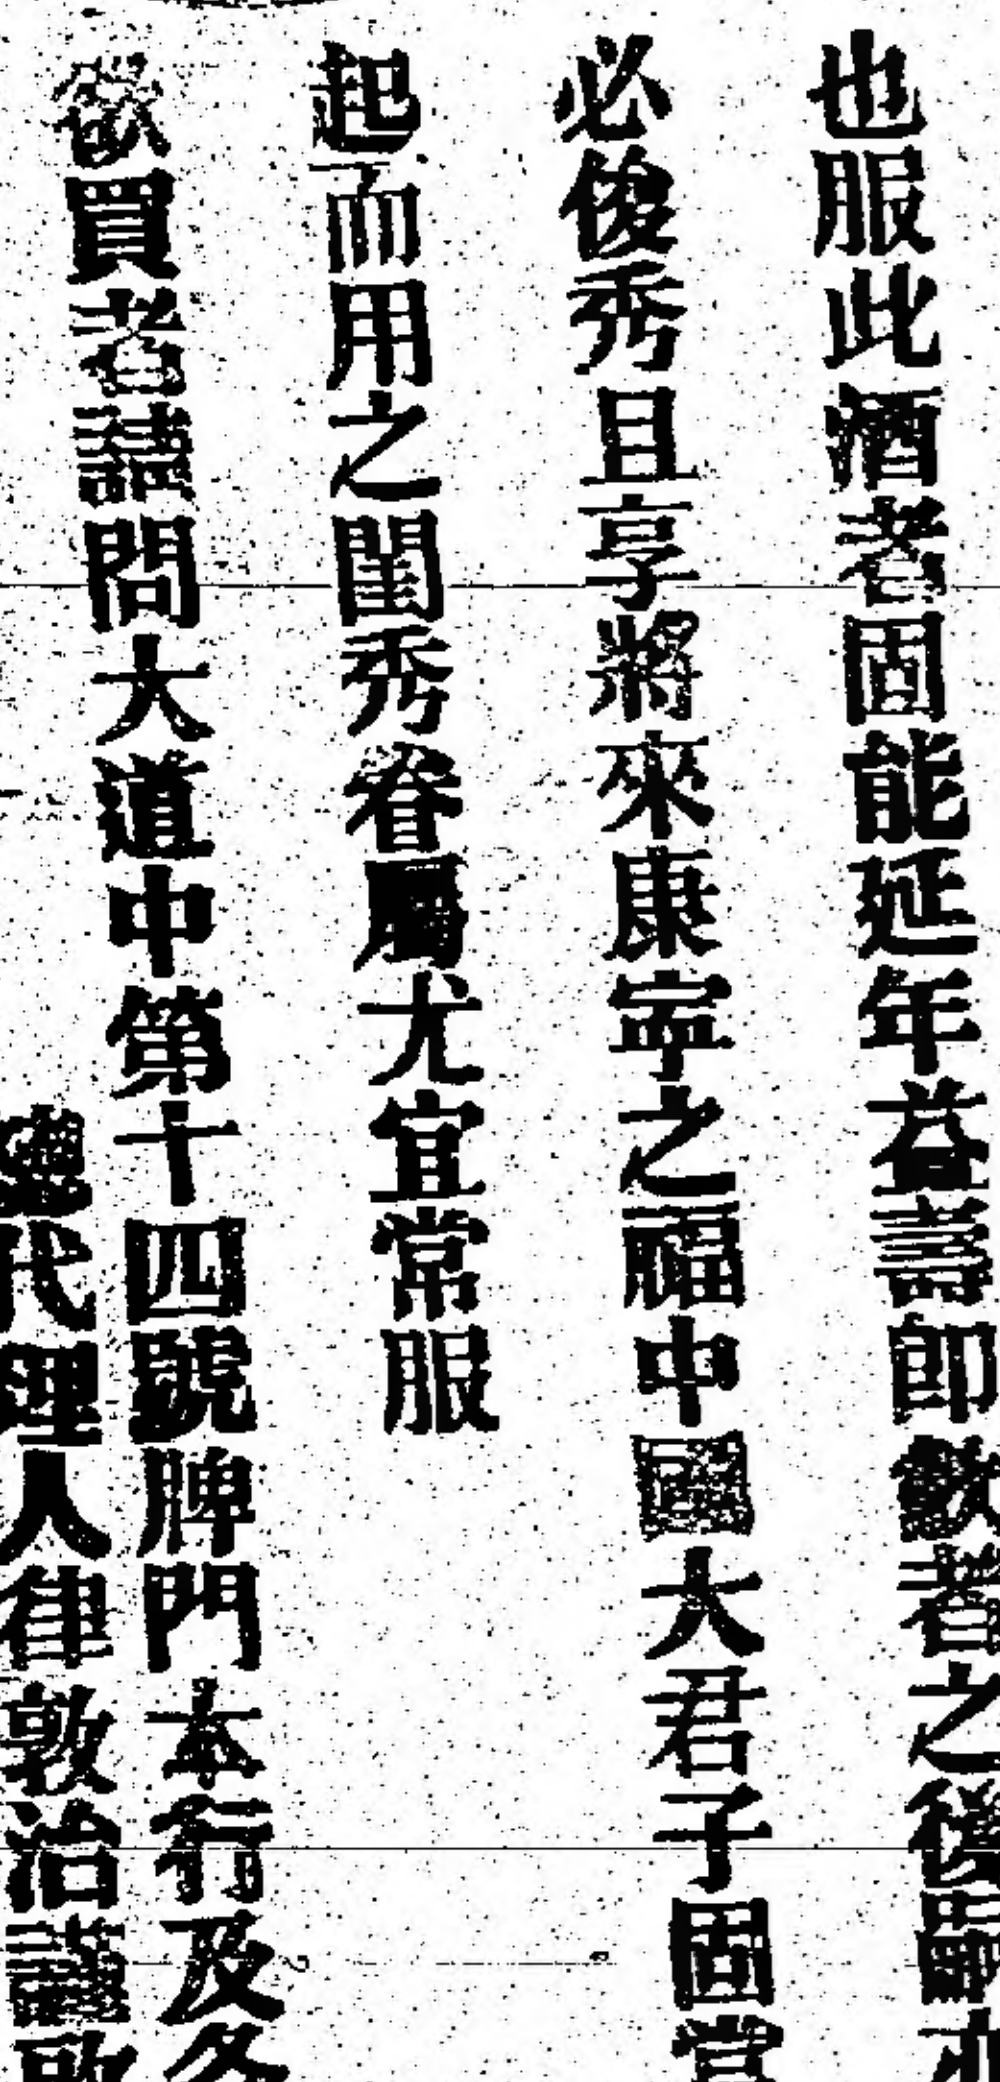 也服此酒者固能延年益壽即數者之後嗣亦
必俊秀且享將來康寧之福中國大君子固當
起而用之閨秀眷屬尤宜常服
欲買者請問大道中第十四號牌門本行及各
總代理人律敦治謹啟